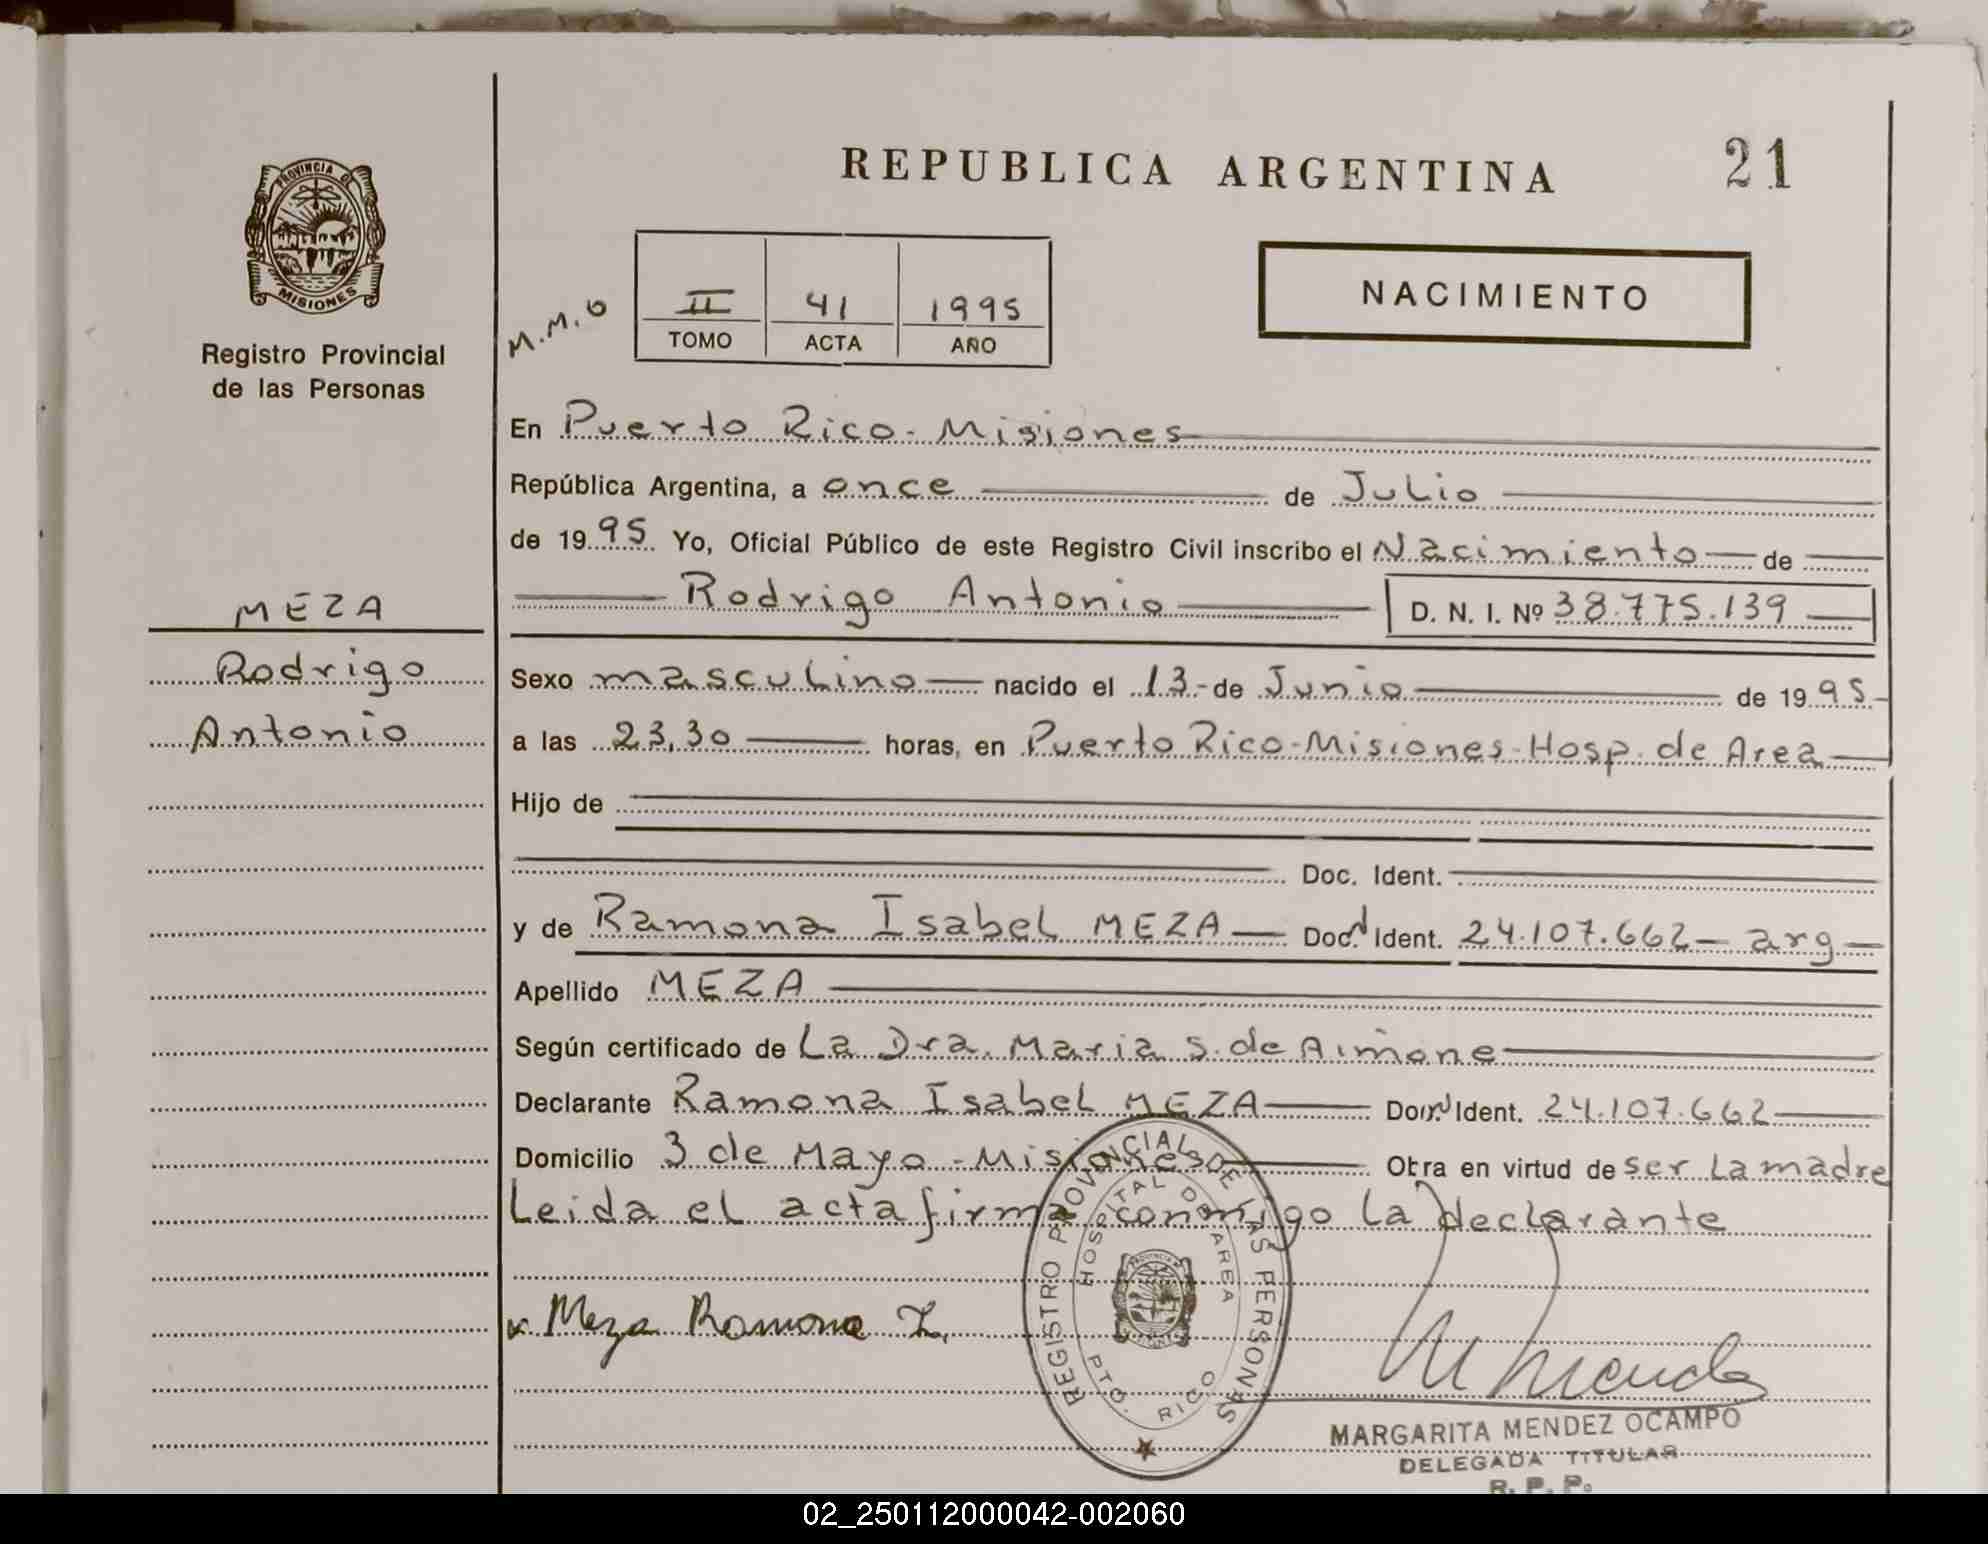 REPUBLICA ARGENTINA
21
PROVINCIA DE
MISIONES
Registro Provincial
de las Personas
M.M.O
II 41 1995
TOMO ACTA AÑO
NACIMIENTO
En Puerto Rico - Misiones
República Argentina, a once de Julio
de 1995 Yo, Oficial Público de este Registro Civil inscribo el Nacimiento de
Rodrigo Antonio D. N. I. Nº 38.775.139
MEZA
Rodrigo
Antonio
Sexo masculino nacido el 13 - de Junio de 1995 -
a las 23,30 horas, en Puerto Rico - Misiones - Hosp. de Area
Hijo de
Doc. Ident.
y de Ramona Isabel MEZA Doc. Ident. 24.107.662 - arg
Apellido MEZA
Según certificado de La Dra. Maria S. de Aimone
Declarante Ramona Isabel MEZA Doc. Ident. 24.107.662
Domicilio 3 de Mayo - Misiones Obra en virtud de ser La madre
Leida el acta firma conmigo la declarante
x Meza Ramona I.
REGISTRO PROVINCIAL DE LAS PERSONAS
HOSPITAL DE AREA
PTO. RICO
MARGARITA MENDEZ OCAMPO
DELEGADA TITULAR
R. P. P.
02_250112000042-002060